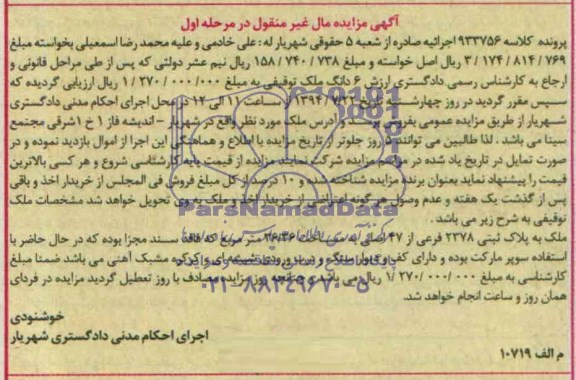 آگهی مزایده مال غیر منقول در مرحله اول
پرونده کلاسه ۹۳۳۷۵۶ اجرائیه صادره از شعبه ۵ حقوقی شهریار له : علی خادمی و علیه محمد رضا اسمعیلی بخواسته مبلغ
۳/۱۷۴/۸۱۴/۷۶۹ ریال اصل خواسته و مبلغ ۱۵۸/۷۴۰/۷۳۸ ریال نیم عشر دولتی که پس از طی مراحل قانونی و
ارجاع به کارشناس رسمی دادگستری ارزش ۶ دانگ ملک توقیفی به مبلغ ۱/۲۷۰/۰۰۰/۰۰۰ ریال ارزیابی گردیده که
سپس مقرر گردید در روز چهارشنبه تاریخ ۱۳۹۴/۷/۲۲ از ساعت ۱۱ الی ۱۲ در محل اجرای احکام مدنی دادگستری
شهریار از طریق مزایده عمومی بفروش برسد و آدرس ملک مورد نظر واقع در شهریار – اندیشه فاز ۱ خ ۱ شرقی مجتمع
سینا می باشد . لذا طالبین می توانند ۵ روز جلوتر از تاریخ مزایده با اطلاع و هماهنگی این اجرا از اموال بازدید نموده و در
صورت تمایل در تاریخ یاد شده در مراسم مزایده شرکت نمایند مزایده از قیمت پایه کارشناسی شروع و هر کسی بالاترین
قیمت را پیشنهاد نماید بعنوان برنده مزایده شناخته شده و ۱۰ درصد از کل مبلغ فروش فی المجلس از خریدار اخذ و باقی
پس از گذشت یک هفته و عدم وصول هر گونه اعتراضی از خریدار اخذ و ملک به وی تحویل خواهد شد مشخصات ملک
توقیفی به شرح زیر می باشد .
ملک به پلاک ثبتی ۲۳۷۸ فرعی از ۴۷ اصلی به مساحت ۲۶/۳۶ متر مربع که فاقد سند مجزا بوده که در حال حاضر با
استفاده سوپر مارکت بوده و دارای کف و دیوار سنگ و درب ورودی شیشه ای و کرکره مشبک آهنی می باشد ضمنا مبلغ
کارشناسی به مبلغ ۱/۲۷۰/۰۰۰/۰۰۰ ریال می باشد چنانچه روز مزایده مصادف با روز تعطیل گردید مزایده در فردای
همان روز و ساعت انجام خواهد شد.
خوشنودی
اجرای احکام مدنی دادگستری شهریار
م الف ۱۰۷۱۹
ParsNamadData
۰۲۱-۸۸۳۴۹۶۷۰-۵